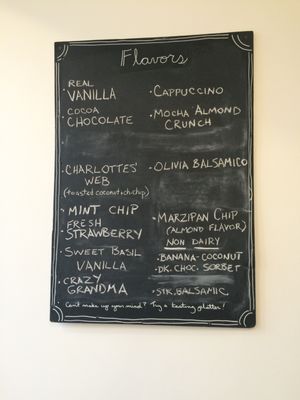 Flavors
REAL
· VANILLA
COCOA
· CHOCOLATE
· CHARLOTTES'
WEB
(toasted coconut+ch.chip)
· MINT CHIP
FRESH
· STRAWBERRY
· SWEET BASIL
VANILLA
· CRAZY
GRANDMA
· CAPPUCCINO
· MOCHA ALMOND
CRUNCH
· OLIVIA BALSAMICO
· MARZIPAN CHIP
(ALMOND FLAVOR)
NON DAIRY
· BANANA-COCONUT
· DK. CHOC. SORBET
· STR. BALSAMIC
Can't make up your mind? Try a tasting platter!